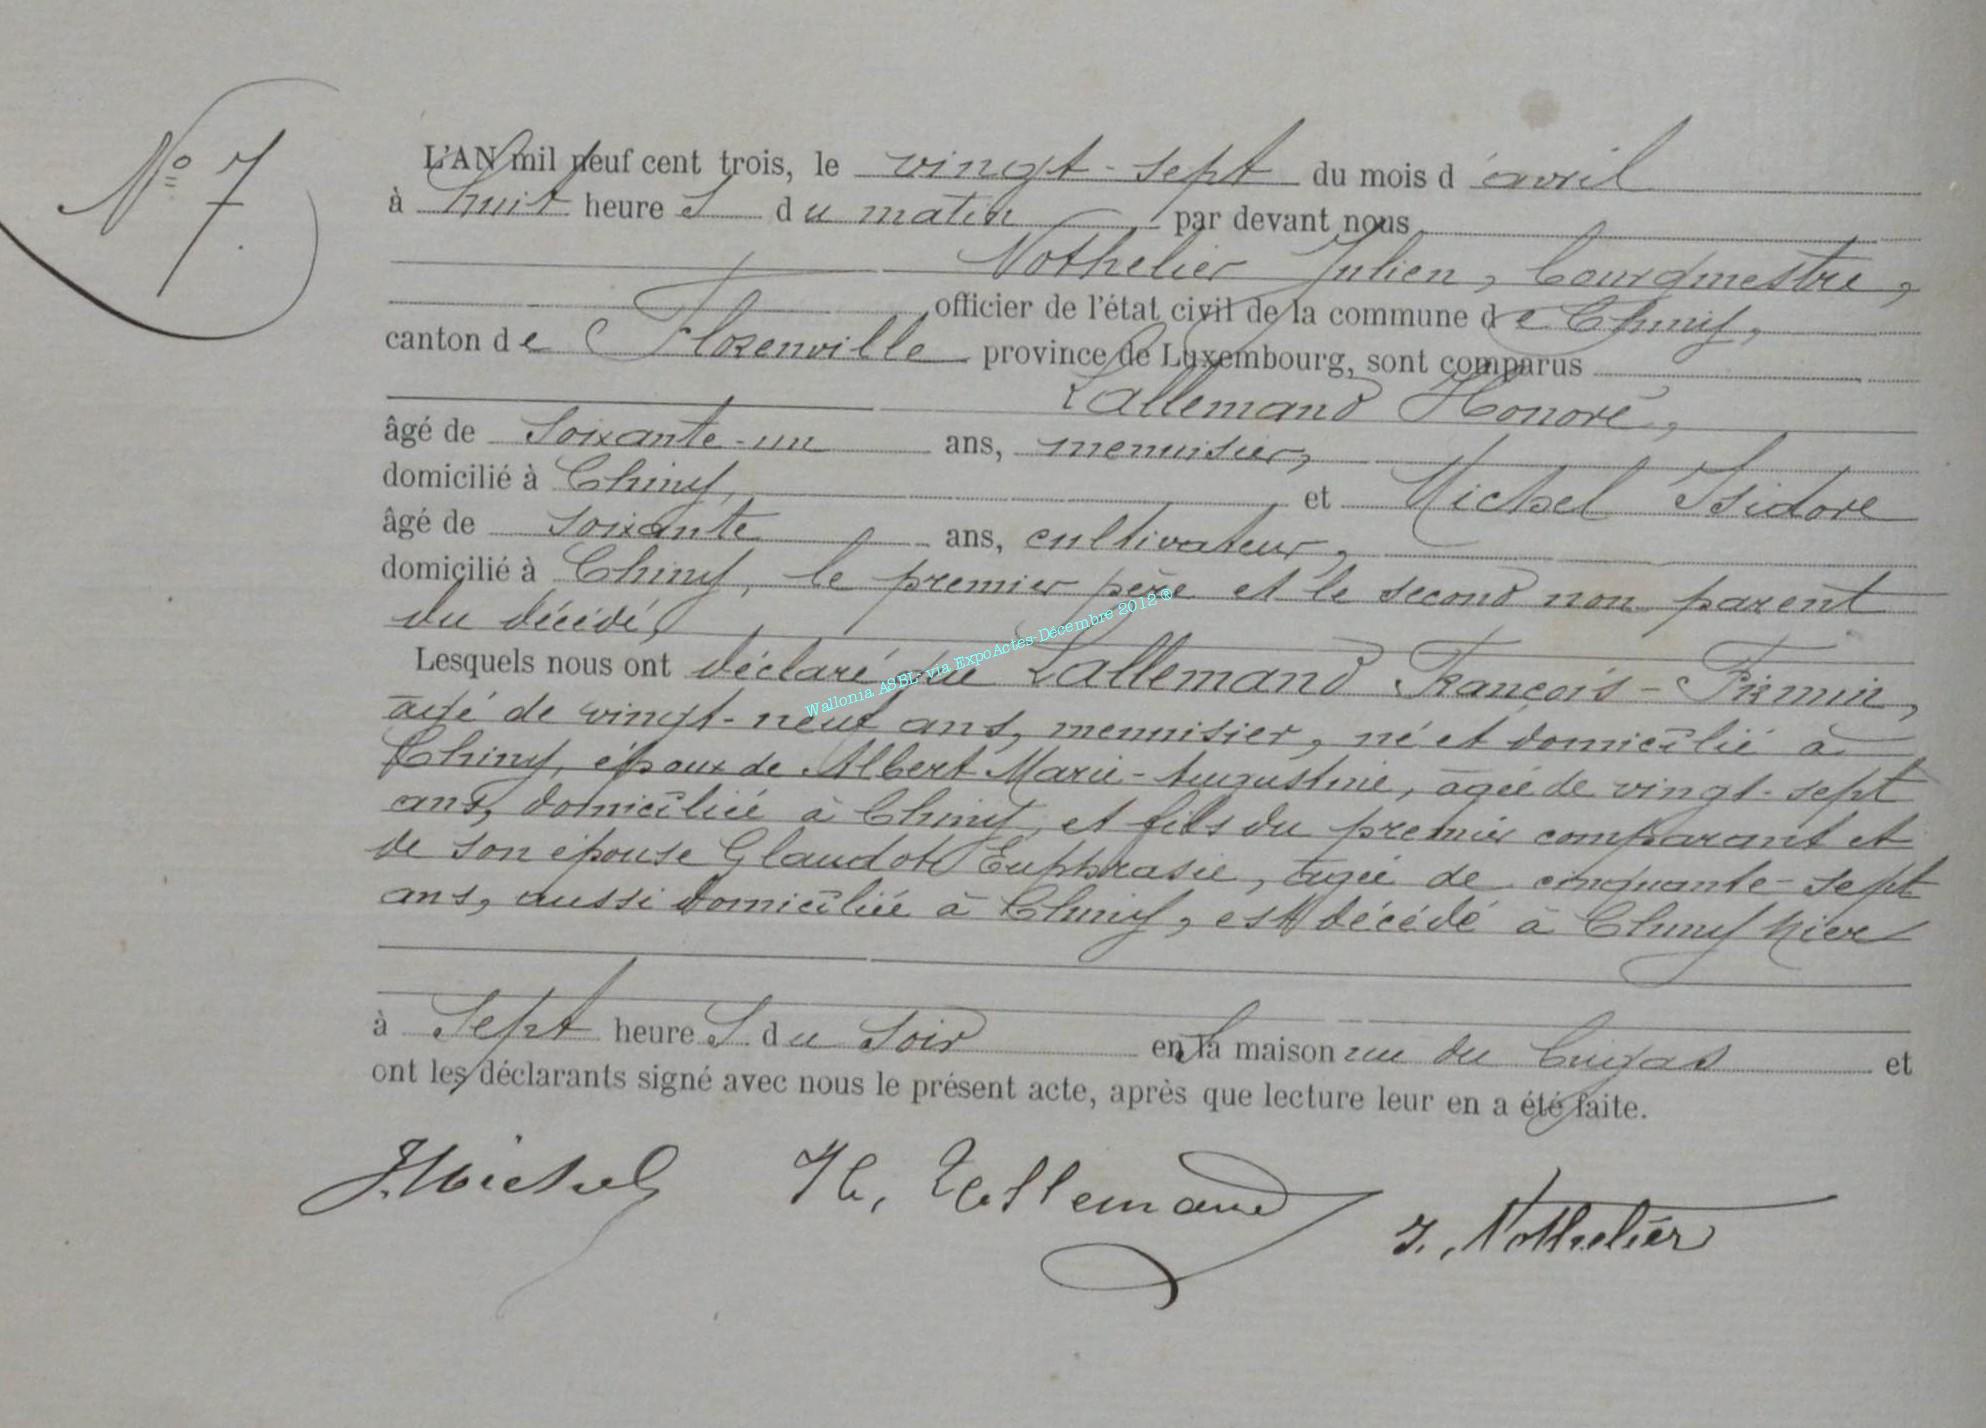 N° 7
L'AN mil neuf cent trois, le vingt-sept du mois d'avril
à huit heures du matin par devant nous
Nothelier Julien, bourgmestre,
officier de l'état civil de la commune de Chiny,
canton de Florenville province de Luxembourg, sont comparus
Lallemand Honoré,
âgé de soixante-un ans, menuisier,
domicilié à Chiny, et Michel Isidore
âgé de soixante ans, cultivateur,
domicilié à Chiny, le premier père et le second non parent
du décédé,
Lesquels nous ont déclaré que Lallemand François-Firmin,
âgé de vingt-neuf ans, menuisier, né et domicilié à
Chiny, époux de Albert Marie-Augustine, âgée de vingt-sept
ans, domiciliée à Chiny, et fils du premier comparant et
de son épouse Glaudot Euphrasie, âgée de cinquante-sept
ans, aussi domiciliée à Chiny, est décédé à Chiny hier
à sept heures du soir en sa maison rue du et
ont les déclarants signé avec nous le présent acte, après que lecture leur en a été faite.
J. Michel H. Lallemand J. Nothelier
Wallonia ASBL-via ExpoActes-Décembre 2012 ®